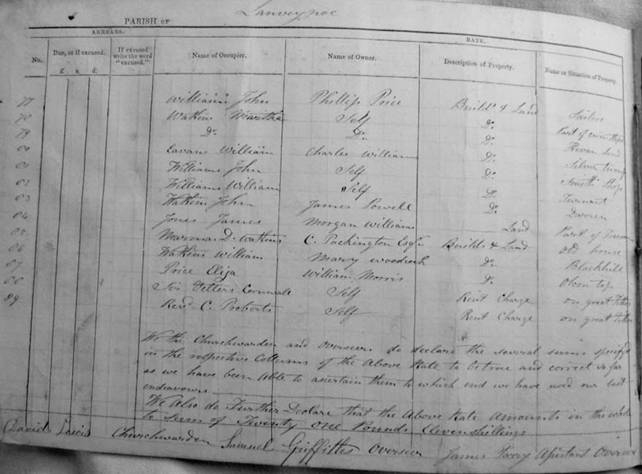 PARISH OF Lanveynoe
ARREARS. RATE.
No. Due, or if excused. If excused write the word "excused." Name of Occupier. Name of Owner. Description of Property. Name or Situation of Property.
£ s. d.
77 William John Phillip Price Build^s & Land
78 Watkins Self D^o
79 D^o D^o D^o Part of
80 Eavans William Charles William D^o
Williams John Self D^o
Williams William Self D^o Smiths Shop
Watkin John James Powell D^o
Jones James Morgan William Land Part of
Watkins C. Packington Esq^r Builds & Land Old house
Watkins William Mary D^o Blackhill
Price Eliza William Morris D^o
Self Rent Charge on great
89 Rev^d C. Proberts Self Rent Charge on great
We the Churchwarden and overseers do declare the several sums specified
in the respective Collumns of the Above Rate to be true and correct as far
as we have been Able to asertain them to which end we have used our best
endeavours
We Also do Further Declare that the Above Rate Amounts in the whole
to Sum of Seventy one Pounds Eleven shillings
David Lewis Churchwarden Samuel Griffiths Overseer James Assistant Overseer